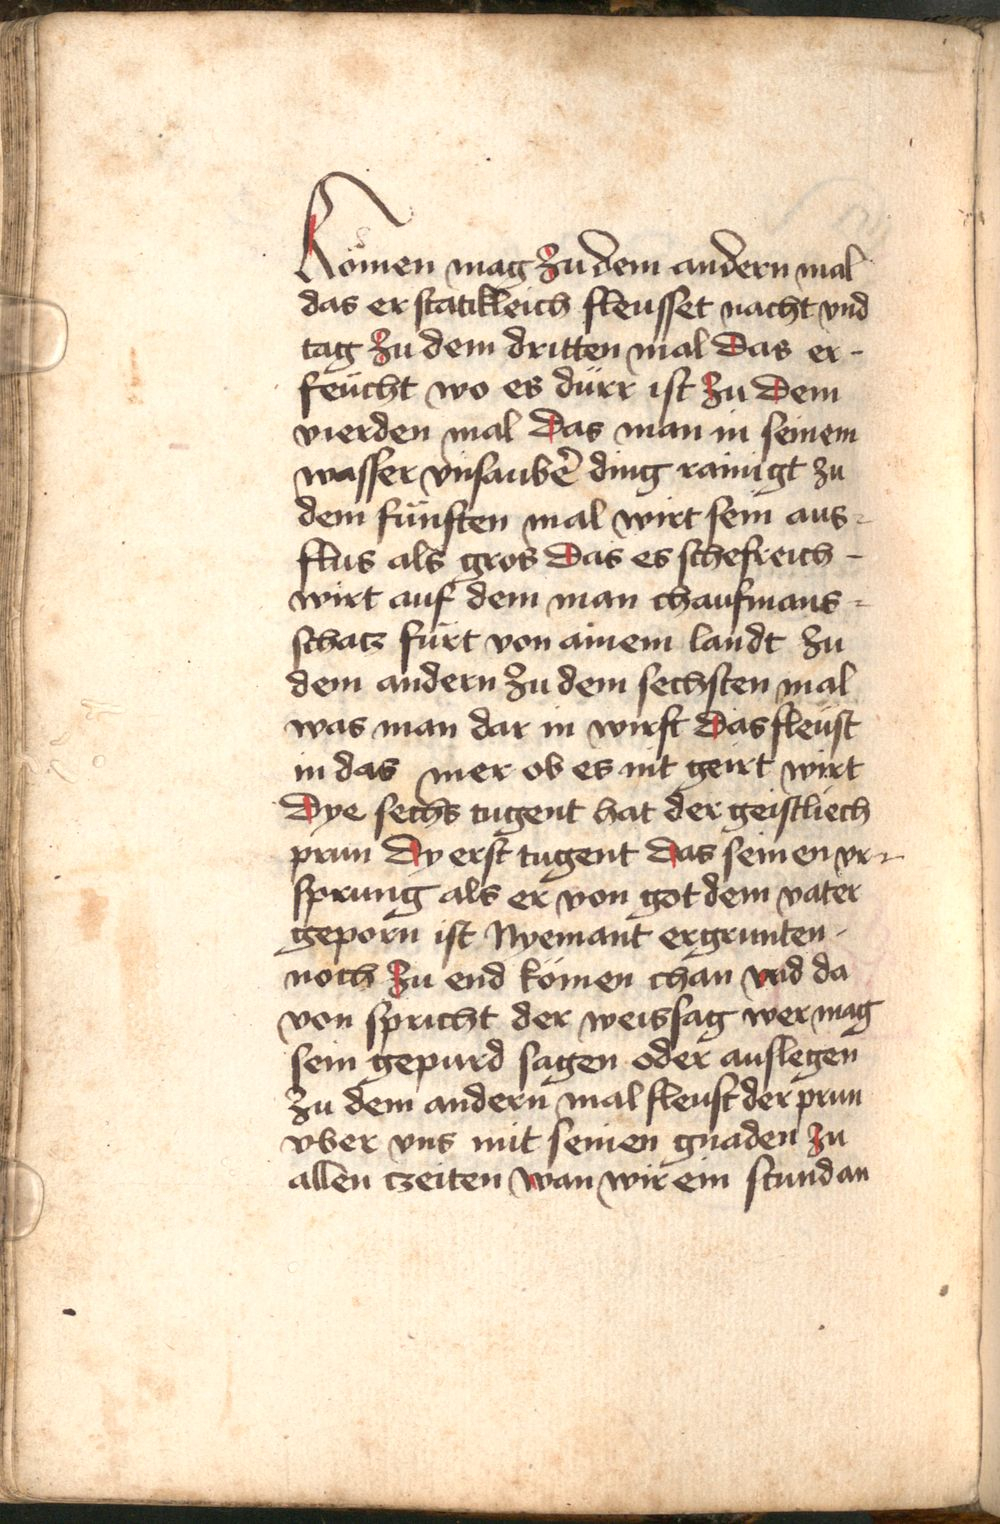 Kömen mag Zu dem andern mal
das er statikleich fleusset nacht vnd
tag Zu dem dritten mal Das er-
feücht wo es dürr ist Zu Dem
vierden mal Das man in seinem
wasser vnsauber ding rainigt zu
dem fünften mal wirt sein aus=
flus als gros Das es schefreich-
wirt auf dem man chaufmans=
schatz fürt von ainem landt Zu
dem andern Zu dem sechsten mal
was man dar in wirft Das fleüst
in das mer ob es nit geirt wirt
Dye sechs tugent hat der geistliech
prun Dy erst tugent Das seinen vr=
sprung als er von got dem vater
geporn ist Nyemant ergrunten-
noch Zu end kömen chan vnd da
von spricht der weissag wer mag
sein gepurd sagen oder auslegen
Zu dem andern mal fleust der prun
vber vns mit seinen gnaden Zu
allen czeiten wan wir ein stund an